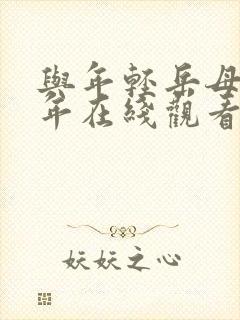 與年輕岳母
年在綫觀看
妖妖之心